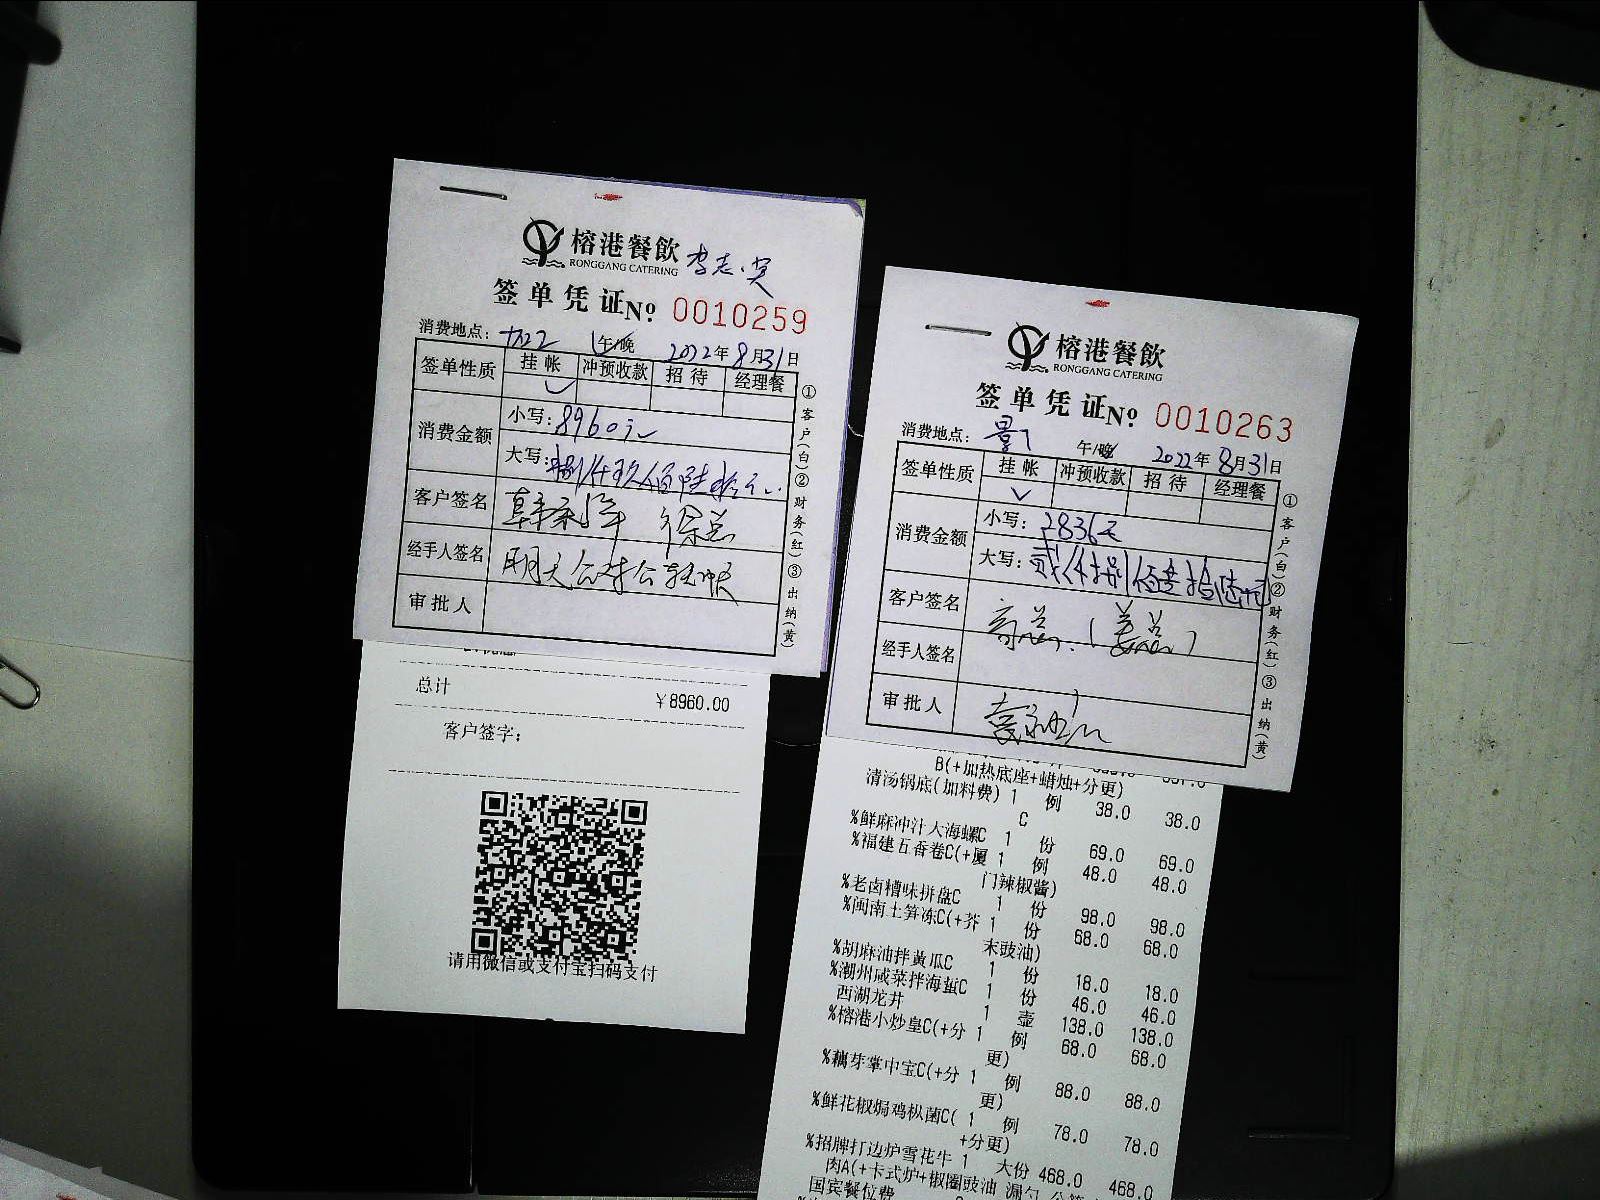 榕港餐飲
RONGGANG CATERING
李志英
签单凭证 No 0010259
消费地点: 午/晚 2022年8月31日
签单性质 挂帐 冲预收款 招待 经理餐
消费金额 小写: 8960元
大写: 捌仟玖佰陆拾元
客户签名 徐总
经手人签名 明天公对公转帐
审批人
①客户(白)②财务(红)③出纳(黄)
总计 ￥8960.00
客户签字:
请用微信或支付宝扫码支付
榕港餐飲
RONGGANG CATERING
签单凭证 No 0010263
消费地点: 午/晚 2022年8月31日
签单性质 挂帐 冲预收款 招待 经理餐
消费金额 小写: 2836元
大写: 贰仟捌佰叁拾陆元
客户签名
经手人签名
审批人
①客户(白)②财务(红)③出纳(黄)
B(+加热底座+蜡烛+分更)
清汤锅底(加料费) 1 例 38.0 38.0
C
%鲜麻冲汁大海螺C 1 份 69.0 69.0
%福建五香卷C(+厦 1 例 48.0 48.0
门辣椒酱)
%老卤糟味拼盘C 1 份 98.0 98.0
%闽南土笋冻C(+芥 1 份 68.0 68.0
末豉油)
%胡麻油拌黄瓜C 1 份 18.0 18.0
%潮州咸菜拌海蜇C 1 份 46.0 46.0
西湖龙井 1 壶 138.0 138.0
%榕港小炒皇C(+分 1 例 68.0 68.0
更)
%藕芽掌中宝C(+分 1 例 88.0 88.0
更)
%鲜花椒焗鸡枞菌C( 1 例 78.0 78.0
+分更)
%招牌打边炉雪花牛 1 大份 468.0 468.0
肉A(+卡式炉+椒圈豉油 漏勺
国宾餐位费